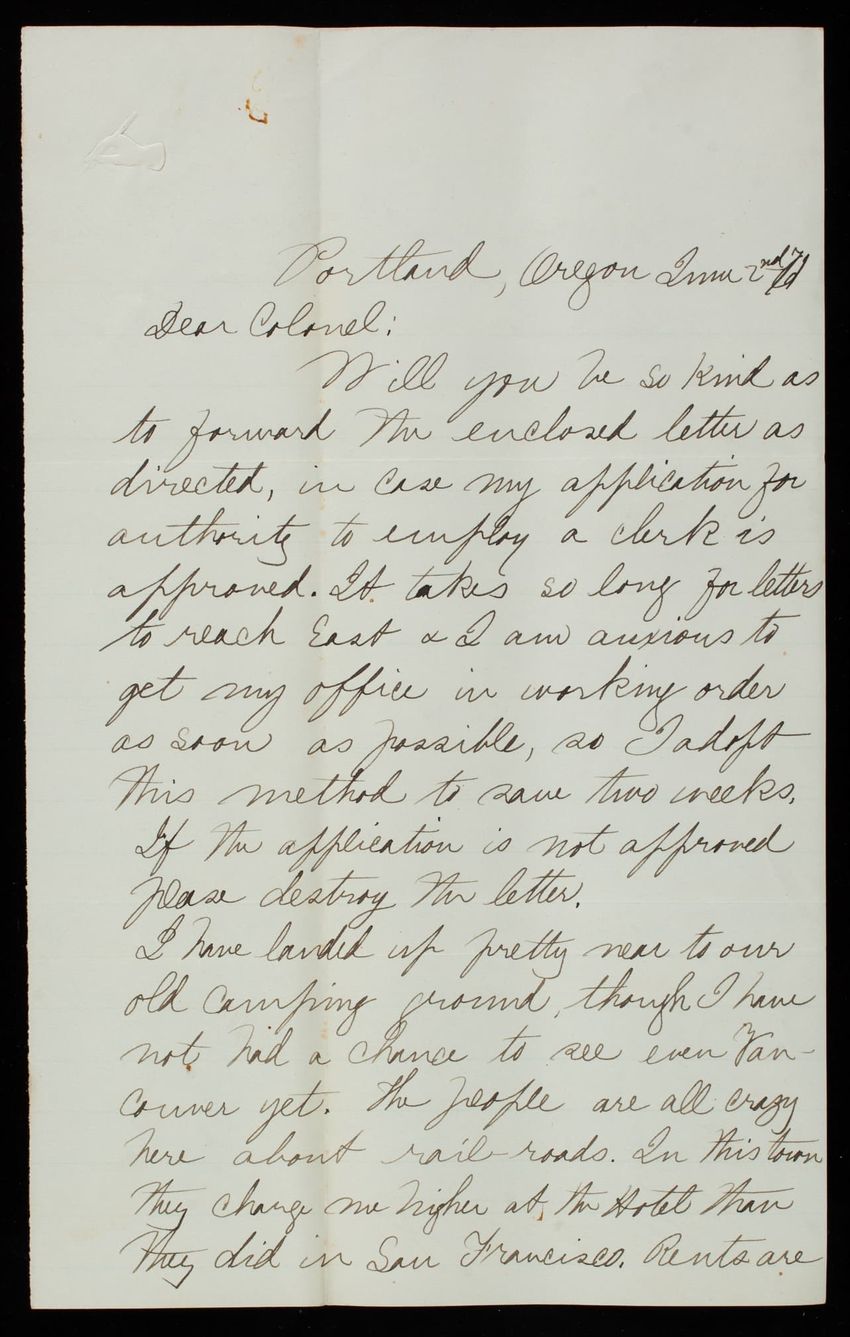 Portland, Oregon June 2nd 71
Dear Colonel:
Will you be so kind as
to forward the enclosed letter as
directed, in case my application for
authority to employ a clerk is
approved. It takes so long for letters
to reach East & I am anxious to
get my office in working order
as soon as possible, so I adopt
this method to save two weeks.
If the application is not approved
please destroy the letter.
I have landed up pretty near to our
old camping ground, though I have
not had a chance to see even Van-
couver yet. The people are all crazy
here about rail-roads. In this town
they charge me higher at the Hotel than
they did in San Francisco. Rents are